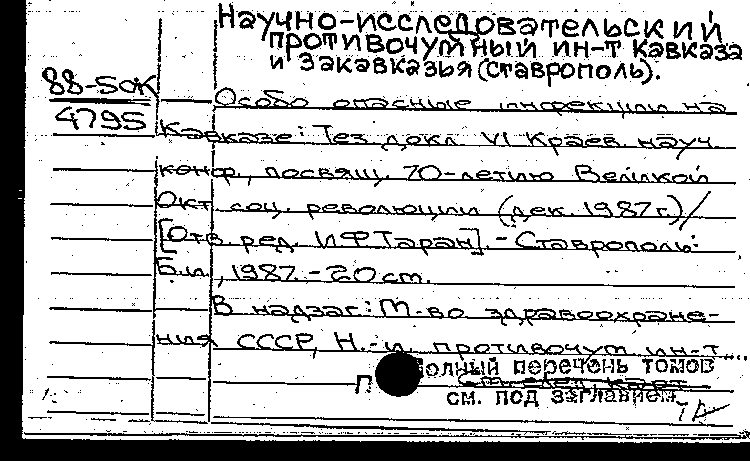 Научно-исследовательский
противочумный ин-т Кавказа
и Закавказья (Ставрополь).
88-5ОК
4795
Особо опасные инфекции на
Кавказе: Тез. докл. VI Краев. науч.
конф., посвящ. 70-летию Великой
Окт. соц. революции (дек. 1987 г.)/
[Отв. ред. И.Ф. Таран]. - Ставрополь:
Б.и., 1987. - 20 см.
В надзаг.: М-во здравоохране-
ния СССР, Н.-и. противочум. ин-т...
Полный перечень томов
См. след. карт.
см. под заглавием.